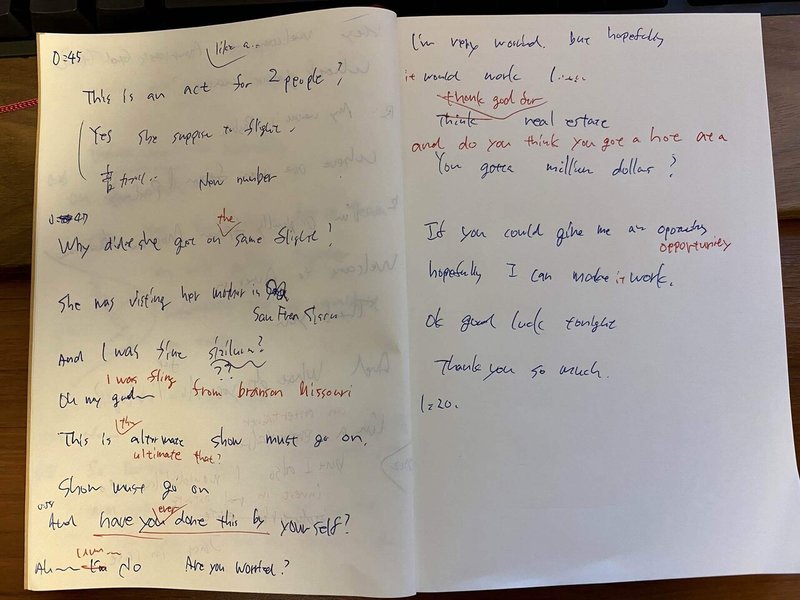 0:45
like a...
This is an act for 2 people?
Yes she suppose to flight.
Now number
the
Why didn she got on same flight?
She was visting her mother in
San Fran Sisco
And I was fine
??
I was fling
Oh my god from branson Missouri
the
This is alternate show must go on.
ultimate that?
Show must go on
ever
And have you done this by yourself?
um
Ah No Are you worried?
I'm very worried. but hopefully
it would work
thank god for
Think real estate
and do you think you got a hot at a
You gotta million dollar?
If you could give me an
opportunity
hopefully I can make it work.
Ok good luck tonight
Thank you so much.
1:20.